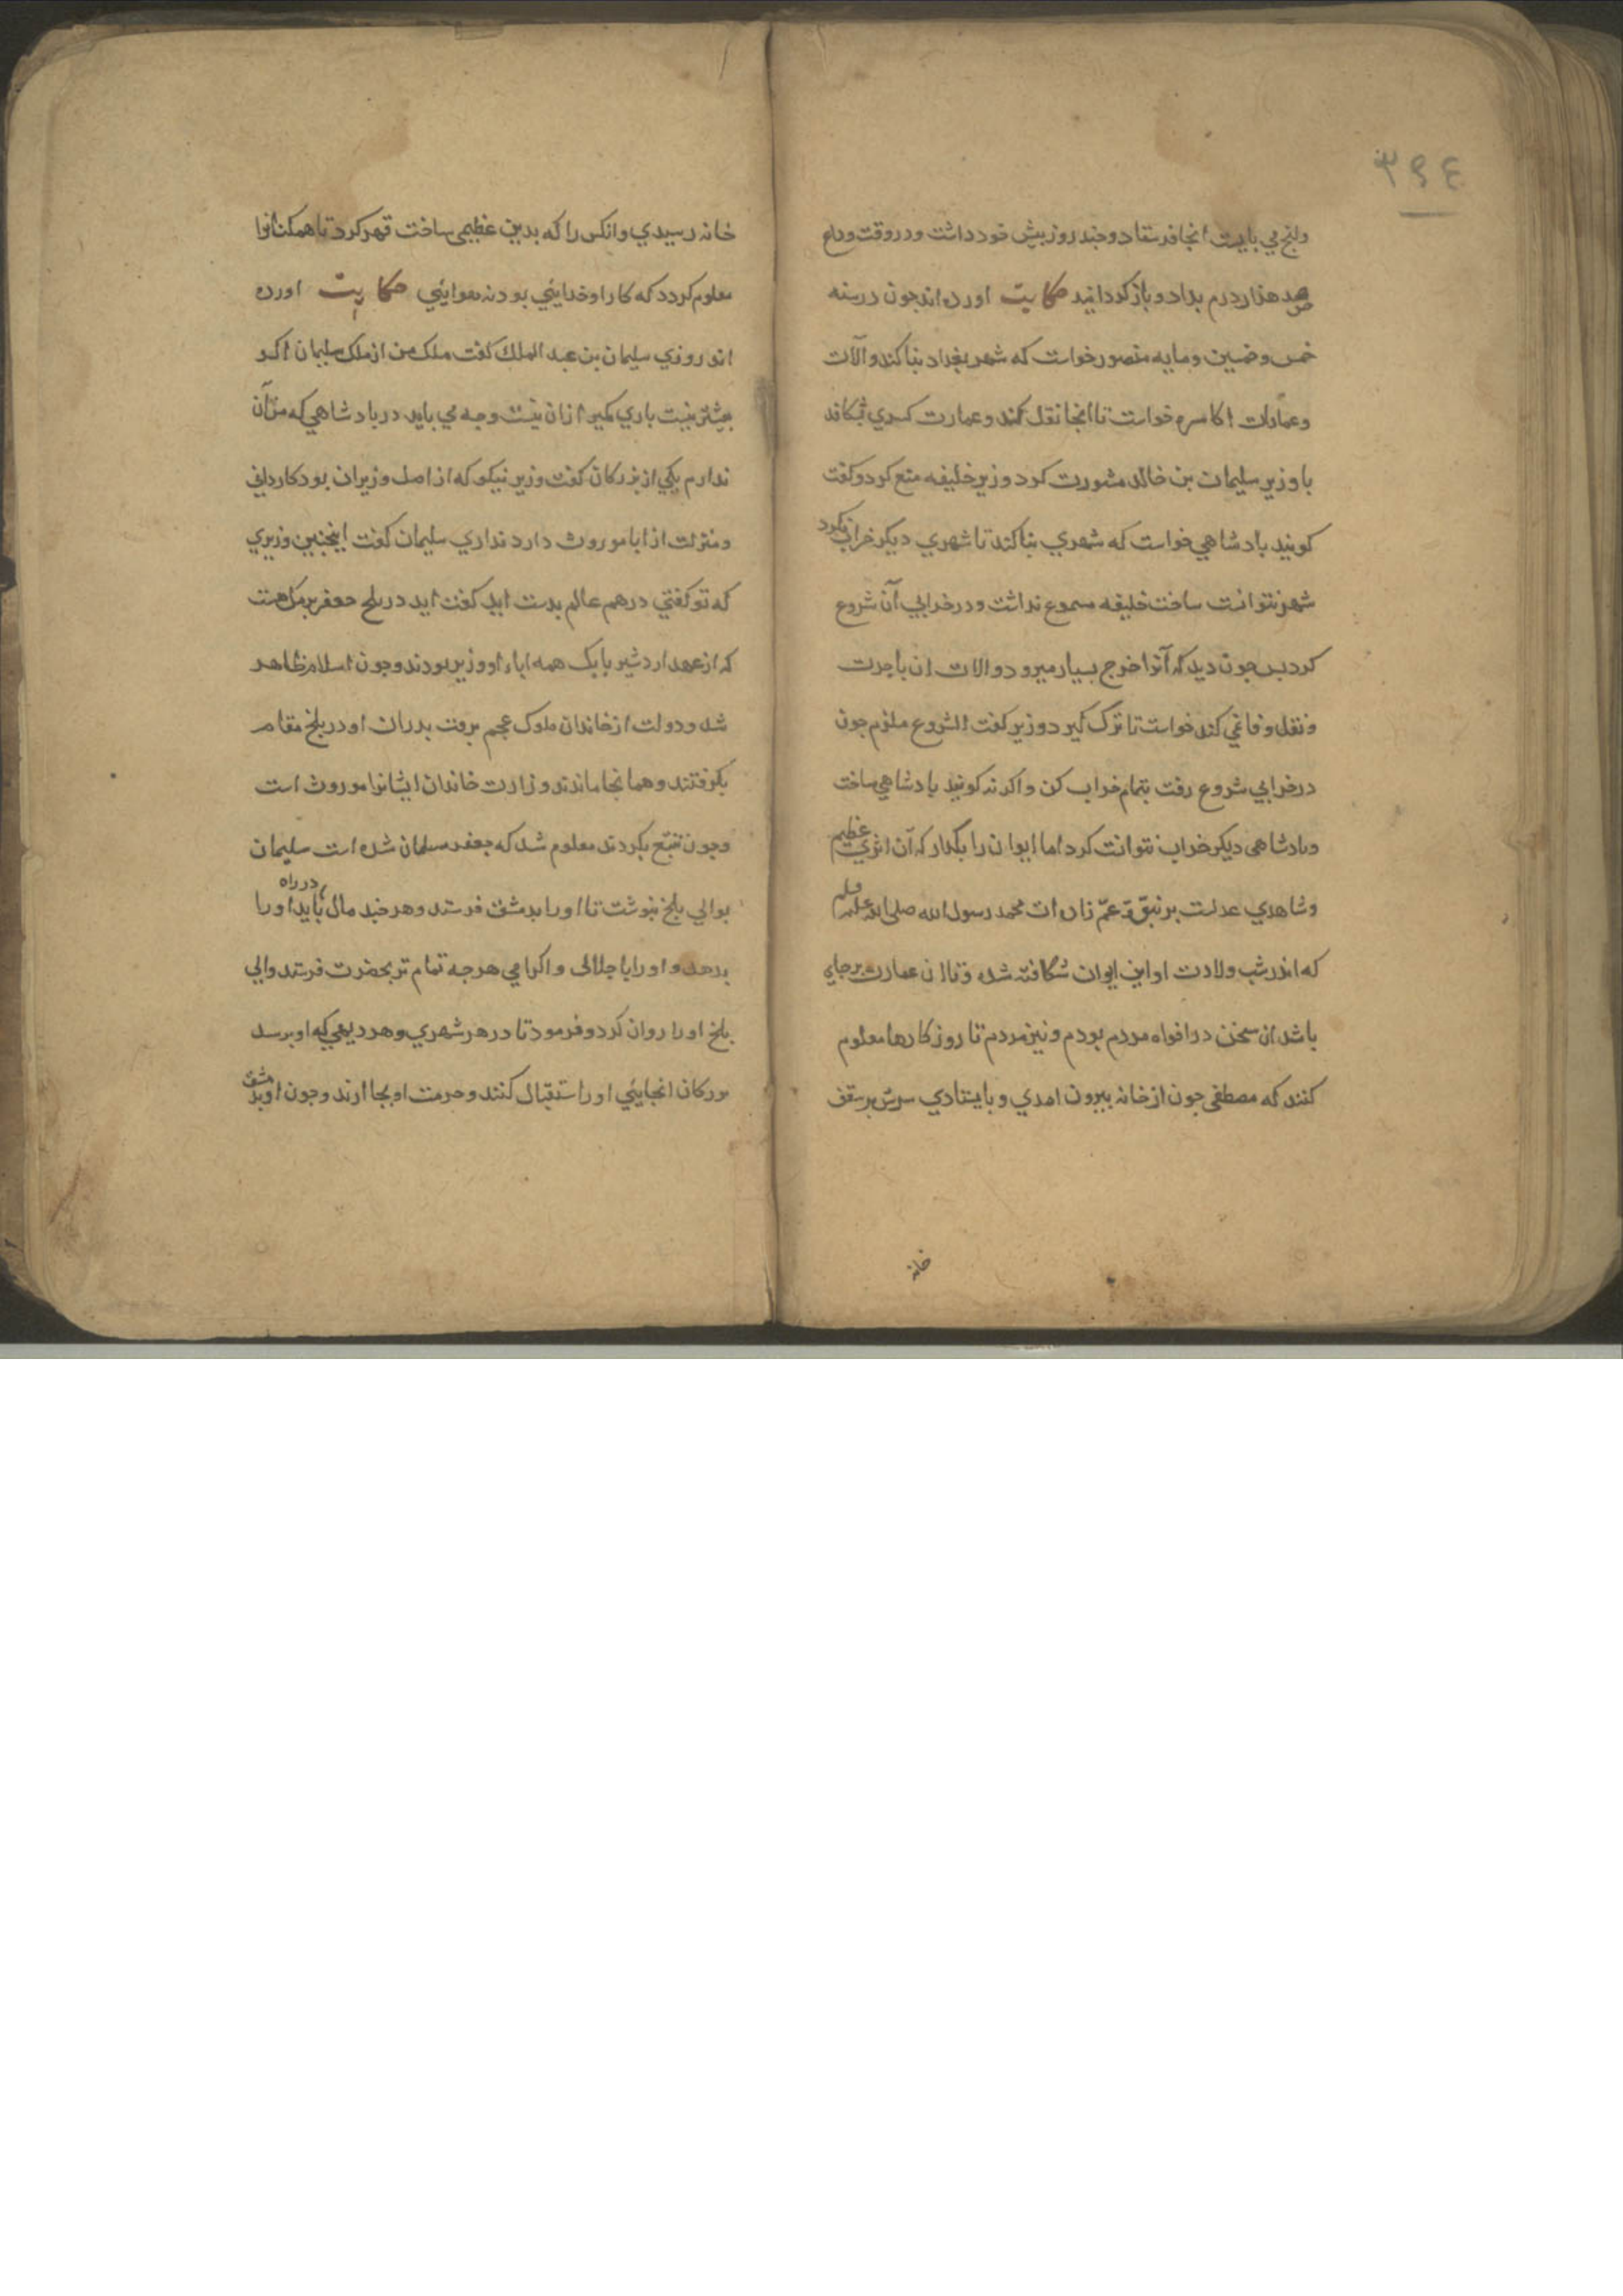 ٣٩٤
وانج می بایست انجا فرستاد و جند روز بیش خود داشت و در وقت وداع
صد هزار درم بداد و باز کردانید حکایت اورده اند جون در سنه
خمس و خمسین و مایه منصور خواست که شهر بغداد بنا کند و آلات
و عمارات اکاسره خواست تا انجا نقل کند و عمارت کسری بشکافد
با وزیر سلیمان بن خالد مشورت کرد وزیر خلیفه منع کرد و کفت
کویند بادشاهی خواست که شهری بنا کند تا شهری دیکر خراب نکرد
شهر نتوانست ساخت خلیفه مسموع نداشت و در خرابی آن شروع
کرد بس جون دید که آنرا خرج بسیار میرود و الات ان باجرت
و نقل وفائی کند خواست تا ترک کیرد وزیر کفت الشروع ملزم جون
در خرابی شروع رفت بتمام خراب کن و اکر نه کویند بادشاهی ساخت
و بادشاهی دیکر خراب نتوانست کرد اما ایوان را بکذار که آن اثری عظیم
و شاهدی عدلست بر نبوّة عمّ زاده ات محمد رسول الله صلی الله علیه وسلم
که اندر شب ولادت او این ایوان شکافته شده و تا ان عمارت بر جای
باشد ان سخن در افواه مردم بودم و نیز مردم تا روزکارها معلوم
کنند که مصطفی جون از خانه بیرون امدی و بایستادی سرش بر سقف
خانه
خانه رسیدی و انکس را که بدین عظیمی ساخت قهر کرد تا همکنانرا
معلوم کردد که کار او خدایئی بود نه هوایئی حکایت اورده
اند روزی سلیمان بن عبد الملک کفت ملک من از ملک سلیمان اکر
بیشتر نیست باری کمیر ازان نیست وجه می باید در بادشاهی که من آن
ندارم یکی از بزرکان کفت وزیر نیکو که از اصل وزیران بود کاردانی
و منزلت از ابا موروث دارد نداری سلیمان کفت اینجنین وزیری
که تو کفتی در همه عالم بدست اید کفت اید در بلخ جعفر برمک هست
که از عهد اردشیر بابک همه اباء او وزیر بودند و جون اسلام ظاهر
شد و دولت از خاندان ملوک عجم برفت بدران او در بلخ مقام
بکرفتند و همانجا ماندند وزارت خاندان ایشانرا موروث است
و جون تتبّع بکردند معلوم شد که جعفر مسلمان شده است سلیمان
بوالی بلخ نبوشت تا اورا بدمشق فرستد و هر جند مال در راه باید اورا
بدهد و اورا باجلالی و اکرامی هرجه تمام تر بحضرت فرستد والی
بلخ اورا روان کرد و فرمود تا در هر شهری و هر دیهی که او برسد
بزرکان انجایئی اورا استقبال کنند و حرمت او بجا ارند و جون او بدمشق